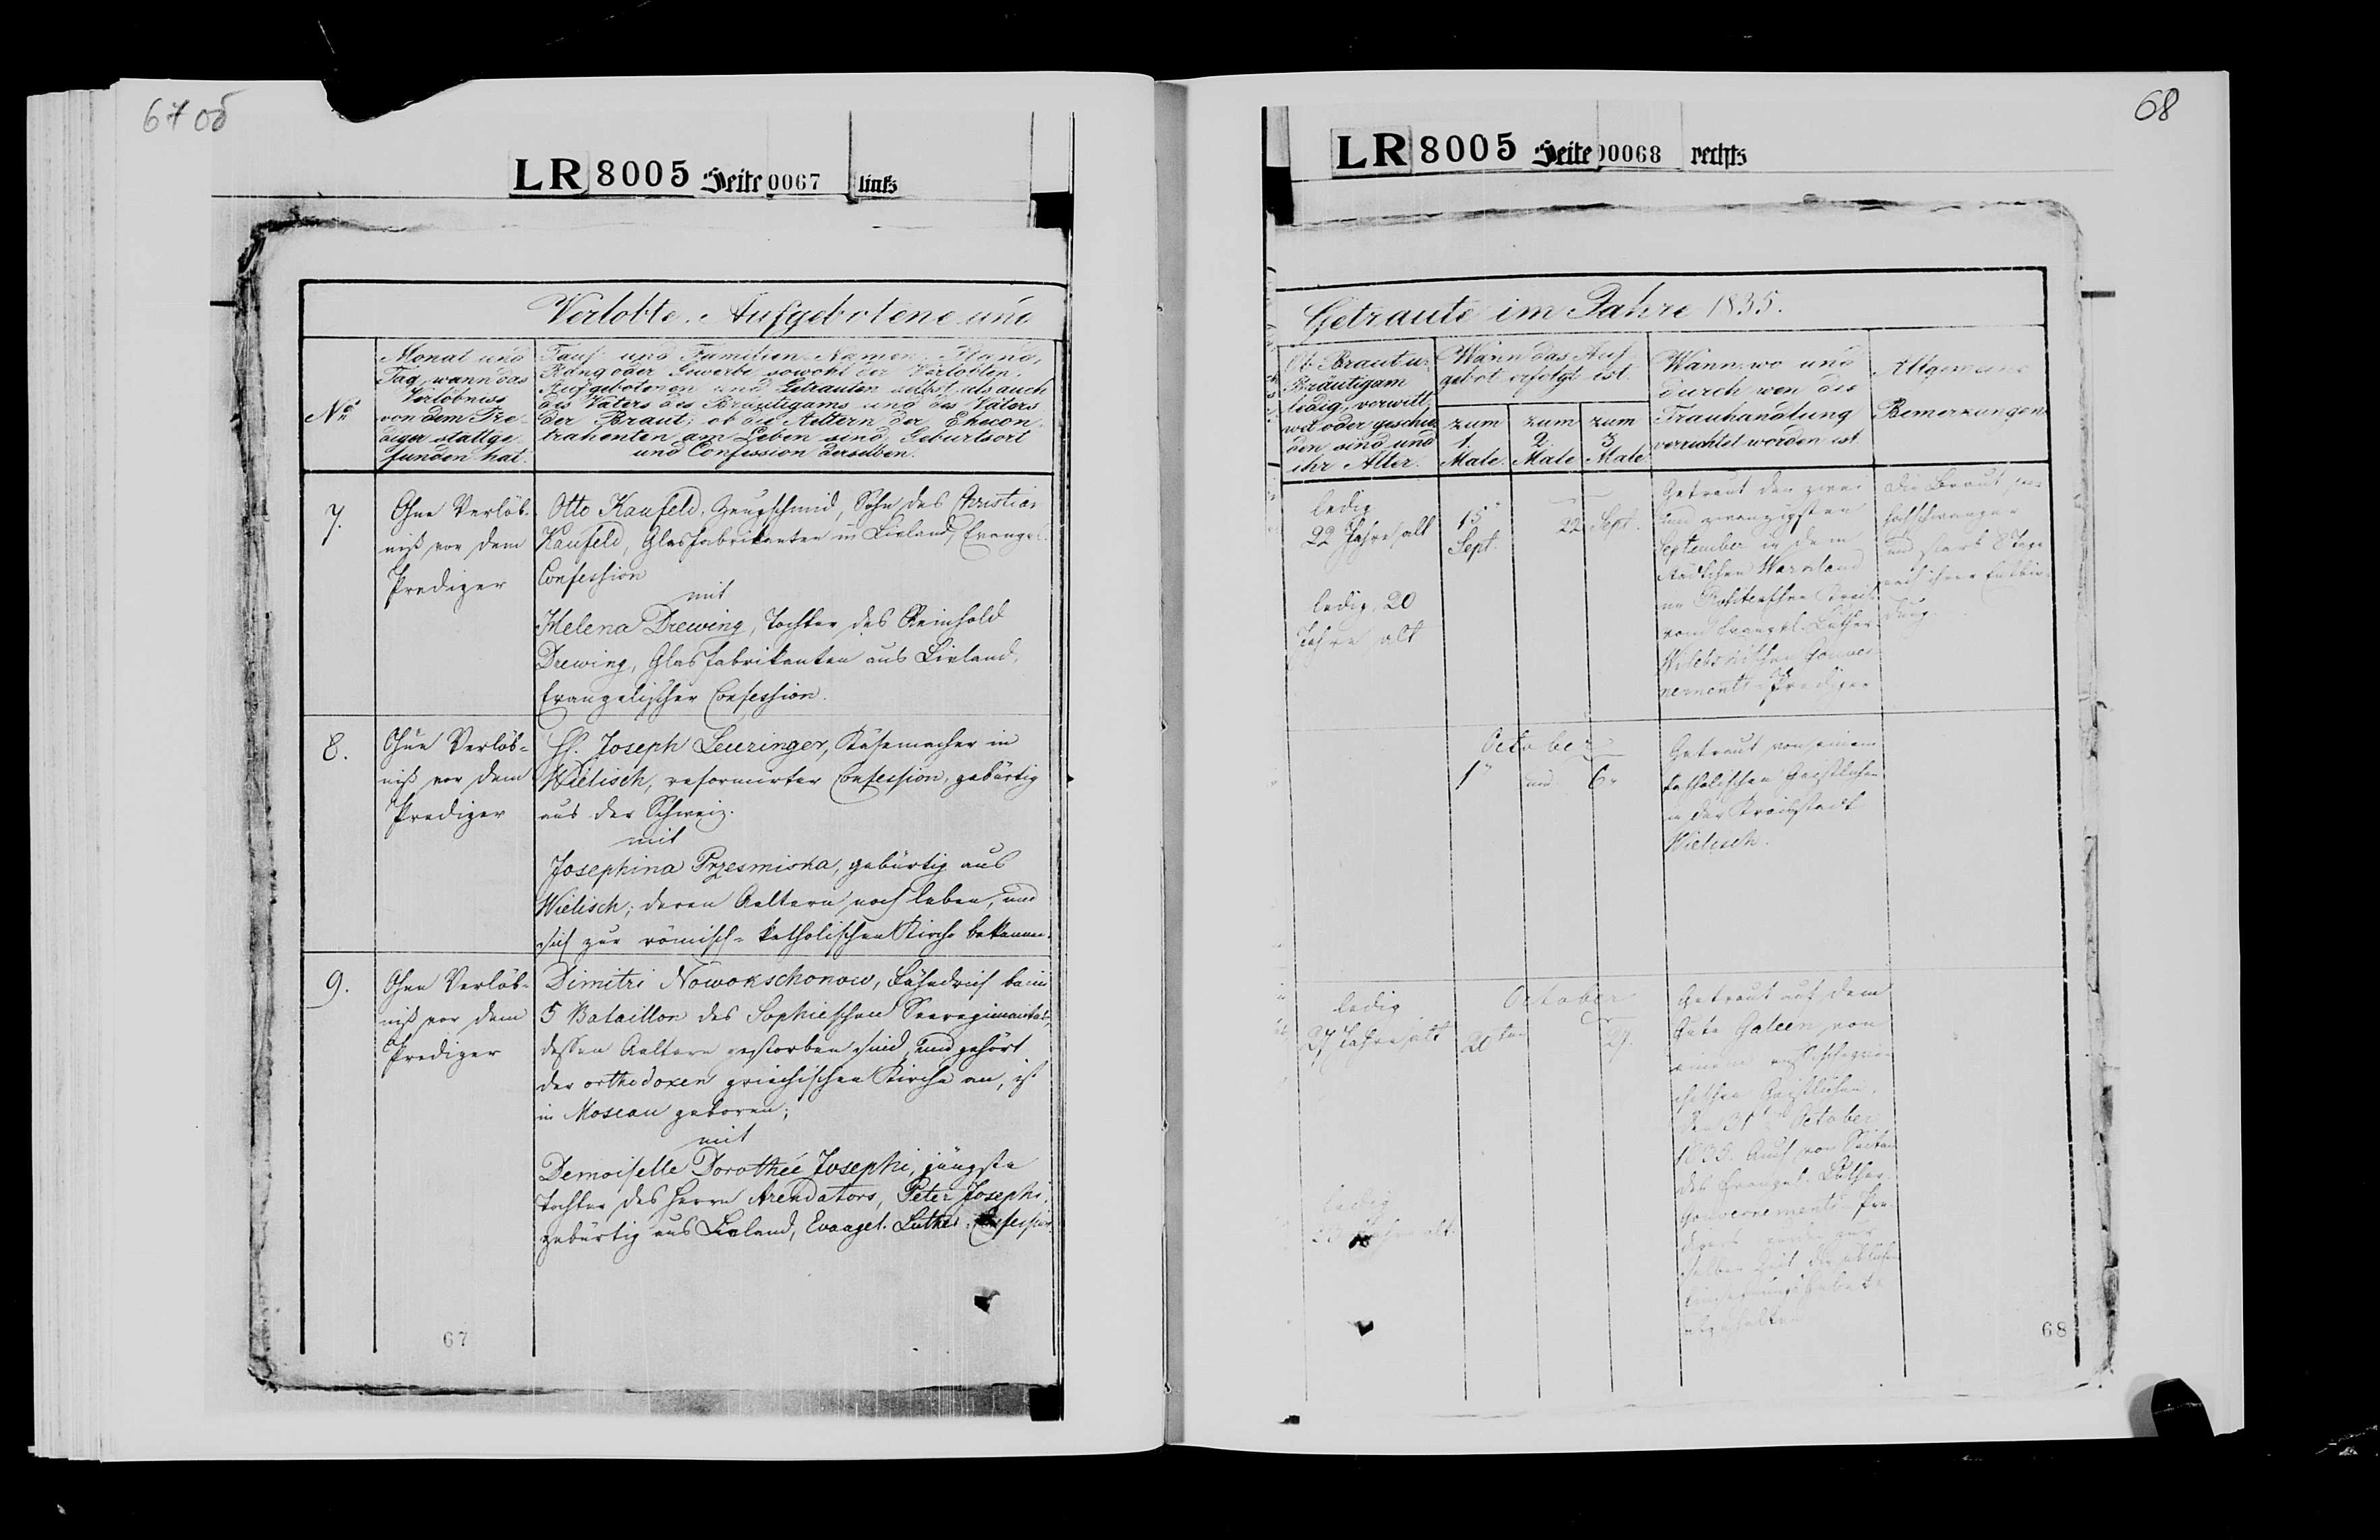 67 об
LR 8005 Seite 0067 links
Verlobte, Aufgebotene und
No
Monat und
Tag, wann das
Verlöbniss
von dem Pre-
diger stattge-
funden hat.
Tauf- und Familien-Namen, Stand,
Rang oder Gewerbe sowohl der Verlobten,
Aufgebotenen und Getrauten selbst, als auch
des Vaters des Bräutigams und des Vaters
der Braut; ob die Aeltern der Ehecon-
trahenten am Leben sind, Geburtsort
und Confession derselben.
7.
Ohne Verlöb-
niß vor dem
Prediger
Otto Kaufeld, Zeugschmid, Sohn des Christian
Kaufeld, Glasfabrikanten in Livland, Evangel.
Confession
mit
Helena Drewing, Tochter des Reinhold
Drewing, Glasfabrikanten aus Livland,
Evangelischer Confession.
8.
Ohne Verlöb-
niß vor dem
Prediger
H. Joseph Leuzinger, Käsemacher in
Wielisch, reformirter Confession, gebürtig
aus der Schweiz.
mit
Josephina Przesmiska, gebürtig aus
Wielisch; deren Aeltern noch leben, und
sich zur römisch-katholischen Kirche bekennen.
9.
Ohne Verlöb-
niß vor dem
Prediger
Dimitri Nowokschonow, Fähndrich beim
5 Bataillon des Sophieschen Seeregiments,
dessen Aeltern gestorben sind, und gehört
der orthodoxen griechischen Kirche an, ist
in Moscau geboren;
mit
Demoiselle Dorothée Josephi, jüngste
Tochter des Herrn Arendators, Peter Josephi,
gebürtig aus Livland, Evangel. Luther. Confession
67
68
LR 8005 Seite 00068 rechts
Getraute im Jahre 1835.
Ob Braut u.
Bräutigam
ledig, verwitt-
wet oder geschie-
den sind und
ihr Alter.
Wann das Auf-
gebot erfolgt ist.
zum
1.
Male.
zum
2.
Male
zum
3.
Male
Wann, wo und
durch wen die
Trauhandlung
verrichtet worden ist
Allgemeine
Bemerkungen
ledig
22 Jahre alt
ledig, 20
Jahre alt
15
Sept.
22 Sept.
Getraut den zwei
und zwanzigsten
September in dem
Städtchen
vom Evangel. Luther.
Witebskischen Gouver-
nements-Prediger
Die Braut war
hochschwanger
und starb 8 Tage
nach ihrer Entbin-
dung.
October
1 und 6
Getraut von einem
katholischen Geistlichen
in der Kreisstadt
Wielisch.
ledig
27 Jahre alt
October
20ten
27.
Getraut auf dem
Gute Galeen von
einem
Geistlichen,
den 31 October
1835. Auch von Seiten
des Evangel. Luther.
Gouvernements-Pre-
digers
selben Zeit
ledig
Jahre alt.
68